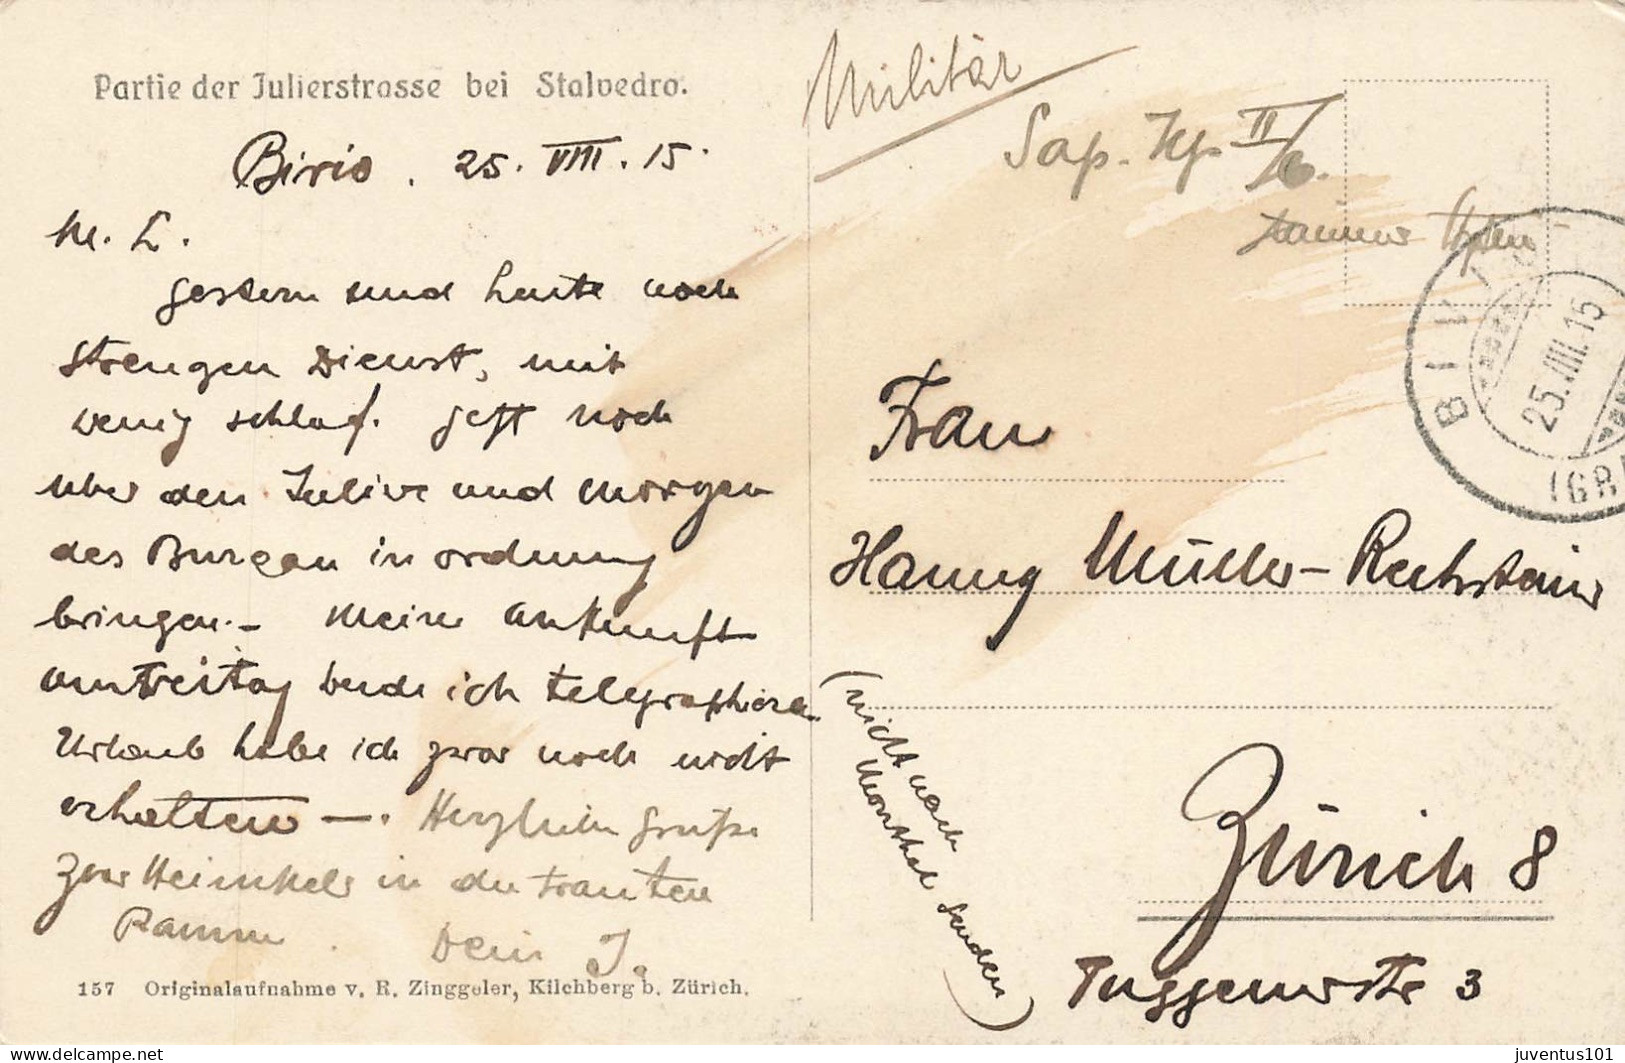 Partie der Julierstrasse bei Stalvedro.
Bivio. 25. VIII. 15.
M. L.
gestern und heute noch
strengen Dienst, mit
wenig schlaf. Jetzt noch
über den Julier und morgen
das Bureau in ordnung
bringen.- Meine Ankunft
am Freitag werde ich telegraphieren
Urlaub habe ich zwar noch nicht
erhalten —. Herzlichen Grüsse
zur Heimkehr in die trauten
Räume. Dein J.
157 Originalaufnahme v. R. Zinggeler, Kilchberg b. Zürich.
Militär
Sap. Kp II/6.
BIVIO
25.VIII.15
(GR)
Frau
Hanny Müller-Rechsteiner
(nicht nach
senden)
Zürich 8
Tuggenerstr 3
juventus101
delcampe.net